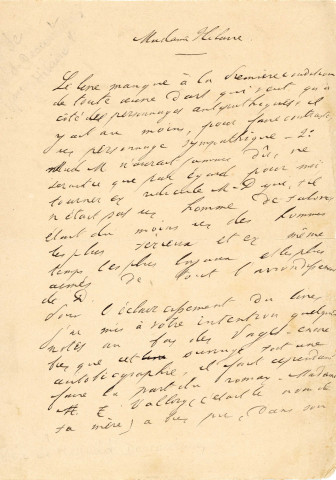 Madame Hilaire
Le livre manque à la première condition
de toute œuvre d'art qui veut qu'à
côté des personnages antipathiques, il
y ait au moins, pour faire contraste,
personnage sympathique - 2°
M n'aurait jamais dû, ne
serait-ce que par égard pour moi
tourner en ridicule M. D que, s'il
n'était pas un homme de talent
était du moins un des hommes
les plus sérieux et en même
temps les plus joyeux et les plus
aimés de tout l'arrondissement
de D.
Pour l'éclaircissement du livre,
j'ai mis à votre intention quelques
notes au bas des pages. encore
bien que cet ouvrage soit une
autobiographie, il faut cependant
faire la part du roman. Madame
M. E. Vallory (c'était le nom de
sa mère) a très pu, dans son